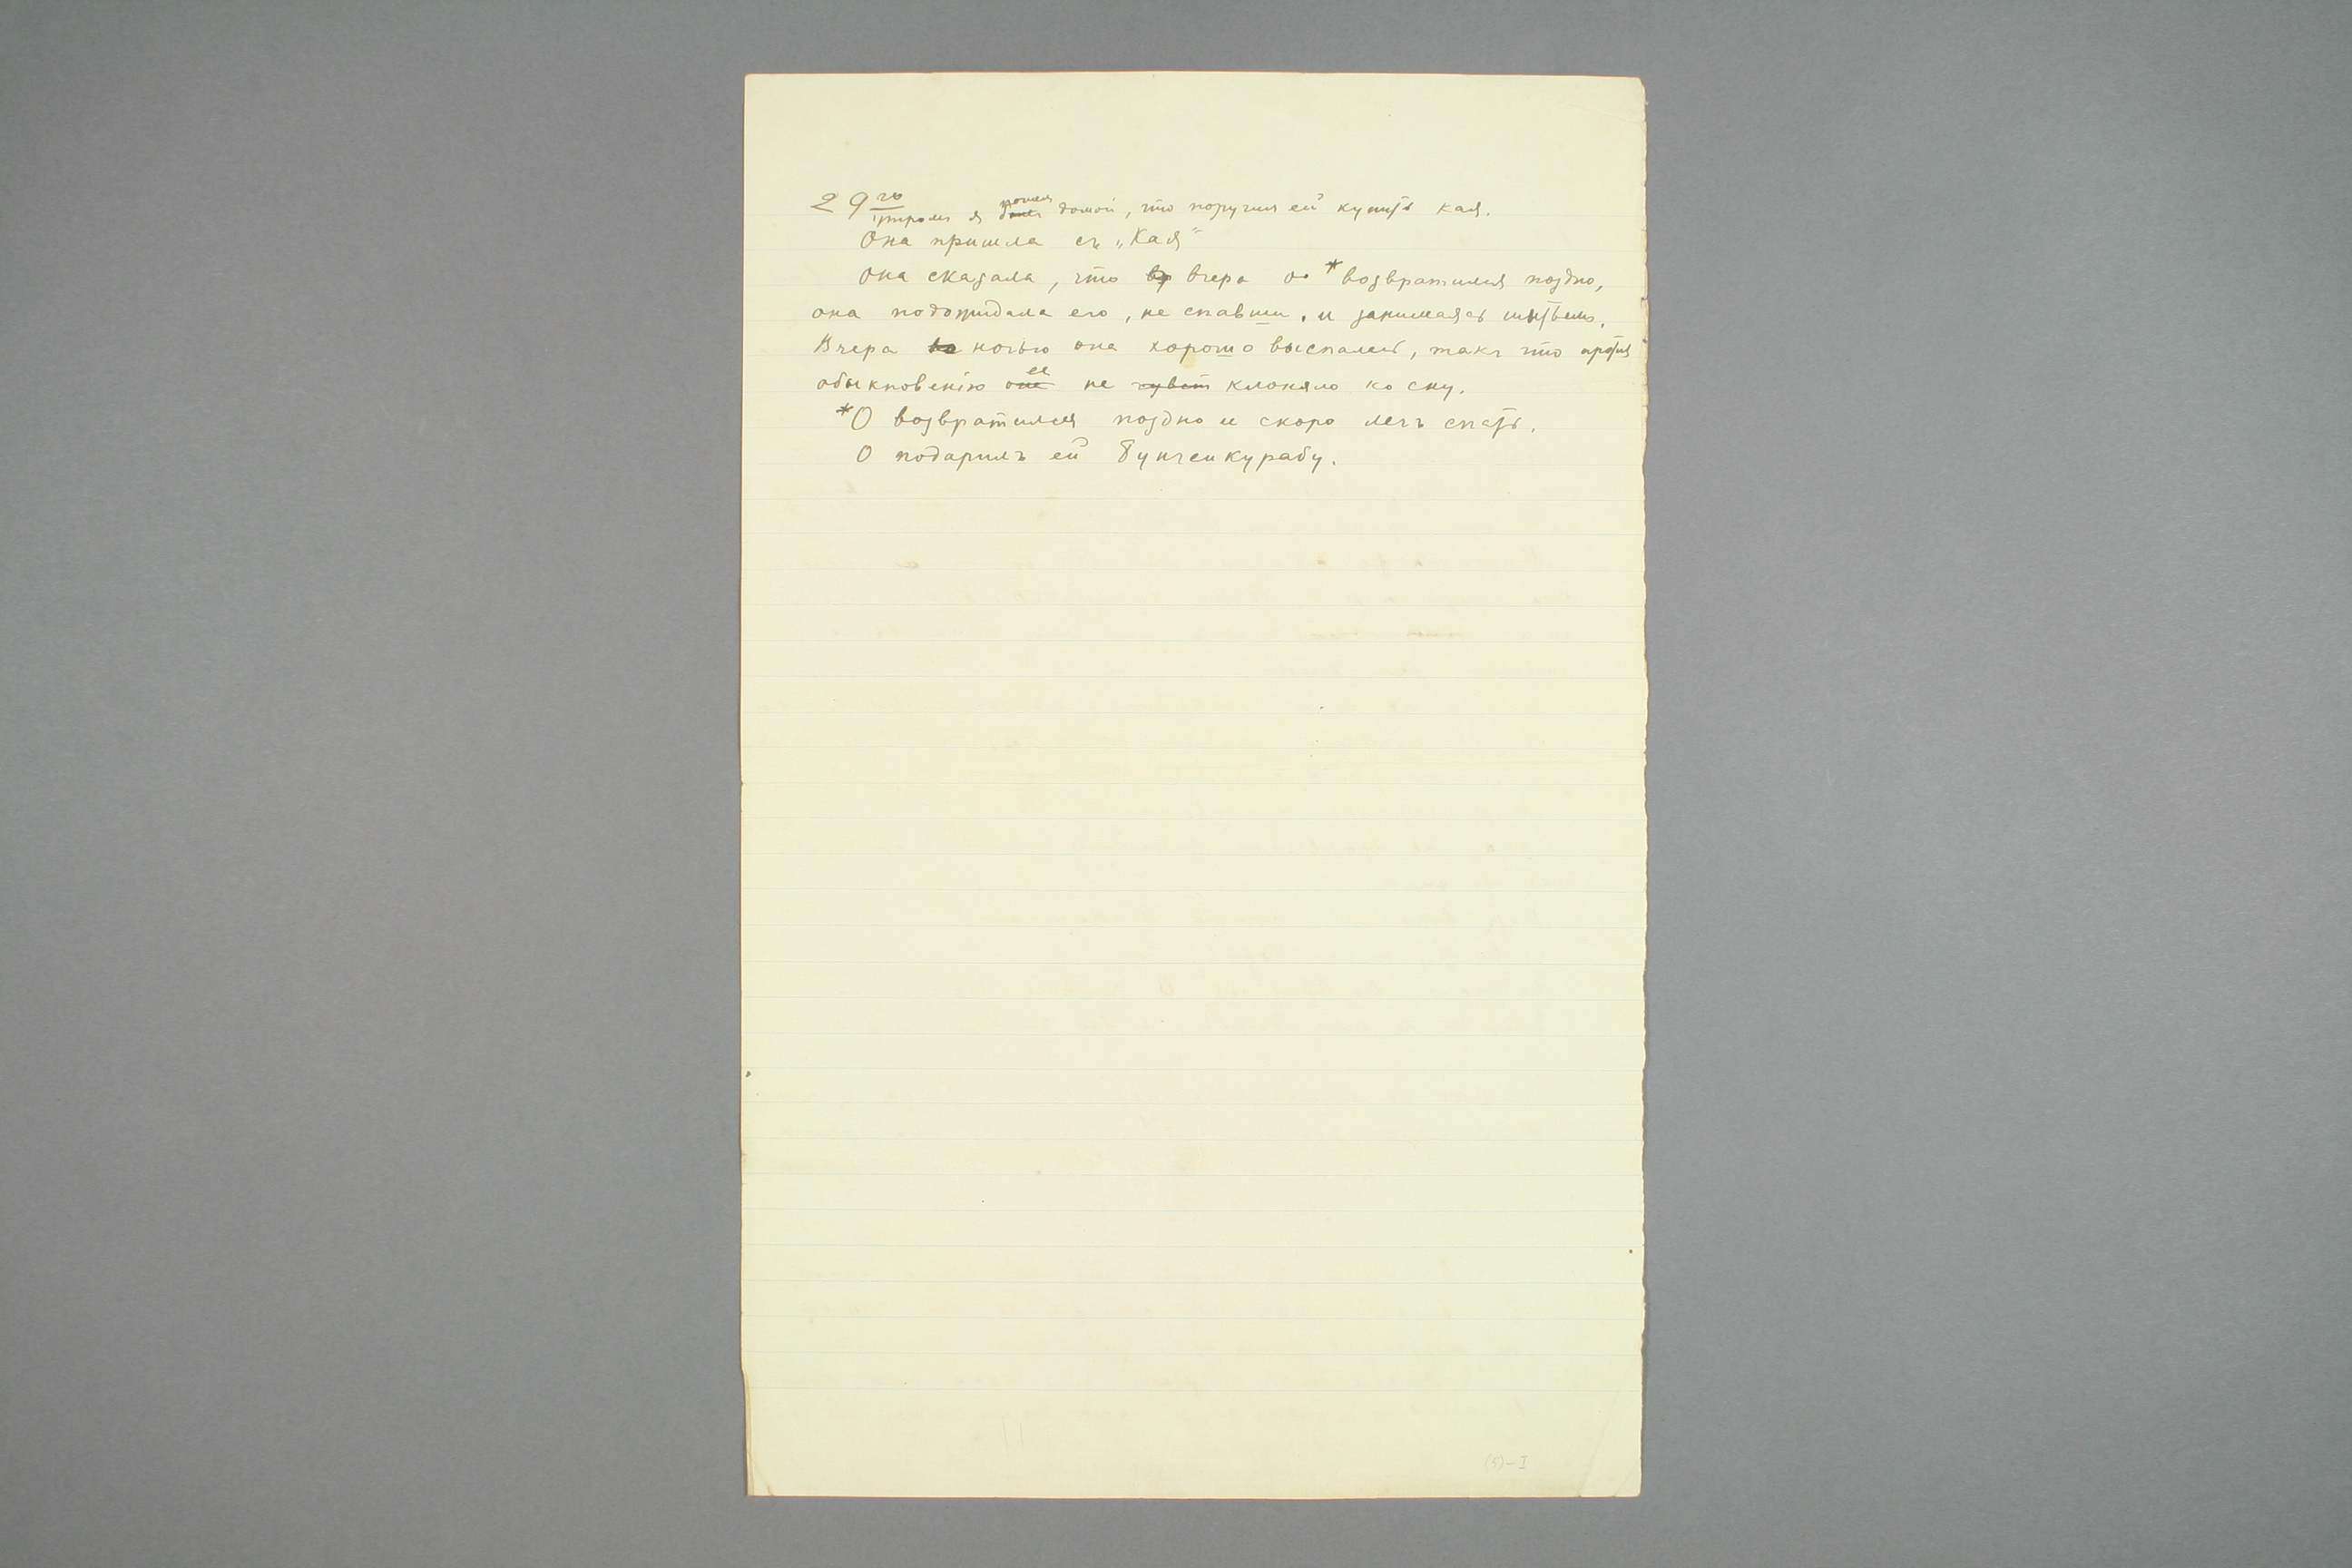 29го
утромъ я пошелъ домой, что поручилъ ей купить кая.
Она пришла съ „Кая“
Она сказала, что вчера о *возвратился поздно,
она подожидала его, не спавши, и занимаясь шитьемъ.
Вчера ночью она хорошо выспалась, такъ что против
обыкновенію ее не клоняло ко сну.
*О возвратился поздно и скоро легъ спать.
О подарилъ ей Бунгенкурабу.
(5)-I